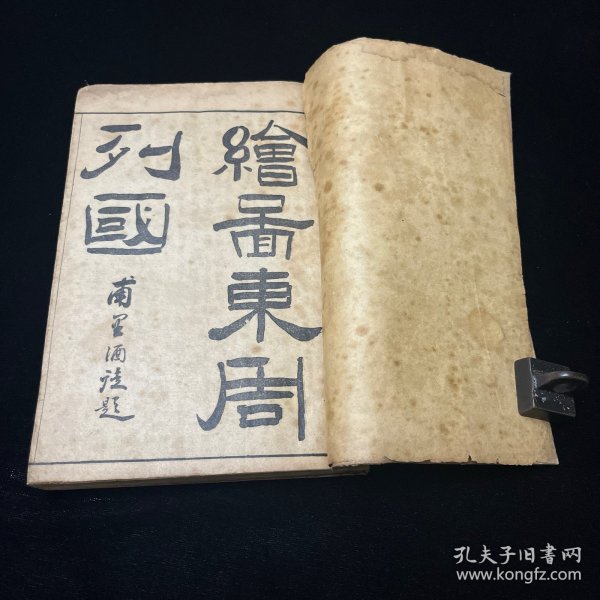 繪圖東周
列國
甫里酒徒題
孔夫子旧書网
www.kongfz.com